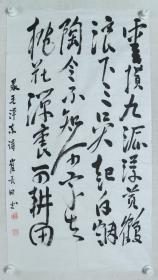 雲横九派浮黄鹤
浪下三吴起白烟
陶令不知何处去
桃花源裏可耕田
录毛泽东诗